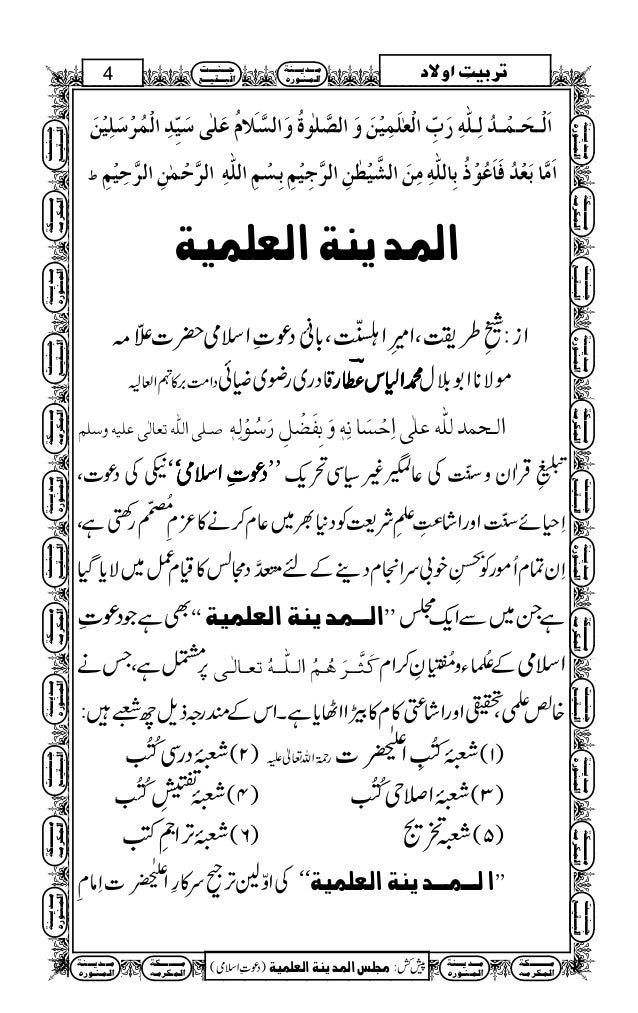 تربیتِ اولاد
4
اَلْحَمْدُ لِلّٰهِ رَبِّ الْعٰلَمِیْنَ وَ الصَّلٰوةُ وَالسَّلَامُ عَلٰی سَیِّدِ الْمُرْسَلِیْنَ
اَمَّا بَعْدُ فَاَعُوْذُ بِاللّٰهِ مِنَ الشَّیْطٰنِ الرَّجِیْمِ بِسْمِ اللّٰهِ الرَّحْمٰنِ الرَّحِیْمِ ط
المدینة العلمیة
از: شیخِ طریقت، امیرِ اہلسنّت، بانیٔ دعوتِ اسلامی حضرت علاّمہ
مولانا ابو بلال محمد الیاس عطار قادری رضوی ضیائی دامت برکاتہم العالیہ
الحمد للّٰه علٰی اِحْسَانِهٖ وَ بِفَضْلِ رَسُوْلِهٖ صلی اللّٰه تعالٰی علیه وسلم
تبلیغِ قراٰن و سنّت کی عالمگیر غیر سیاسی تحریک ’’دعوتِ اسلامی‘‘ نیکی کی دعوت،
اِحیائے سنّت اور اشاعتِ علمِ شریعت کو دنیا بھر میں عام کرنے کا عزمِ مُصمّم رکھتی ہے،
اِن تمام اُمور کو بحسنِ خوبی سر انجام دینے کے لئے متعدَّد مجالس کا قیام عمل میں لایا گیا
ہے جن میں سے ایک مجلس ’’المدینة العلمیة‘‘ بھی ہے جو دعوتِ
اسلامی کے عُلماء و مُفتیانِ کرام کَثَّرَ هُمُ اللّٰهُ تعالٰی پر مشتمل ہے، جس نے
خالص علمی، تحقیقی اور اشاعتی کام کا بیڑا اٹھایا ہے۔ اس کے مندرجہ ذیل چھ شعبے ہیں:
(۱) شعبۂ کتُبِ اعلیٰحضرت رحمۃ اللہ تعالیٰ علیہ (۲) شعبۂ درسی کُتُب
(۳) شعبۂ اصلاحی کُتُب (۴) شعبۂ تفتیشِ کُتُب
(۵) شعبۂ تخریج (۶) شعبۂ تراجمِ کتب
’’المدینة العلمیة‘‘ کی اوّلین ترجیح سرکارِ اعلیٰحضرت اِمامِ
پیش کش: مجلس المدینة العلمیة (دعوتِ اسلامی)
مدینة المنورہ
جنت البقیع
مکة المکرمہ